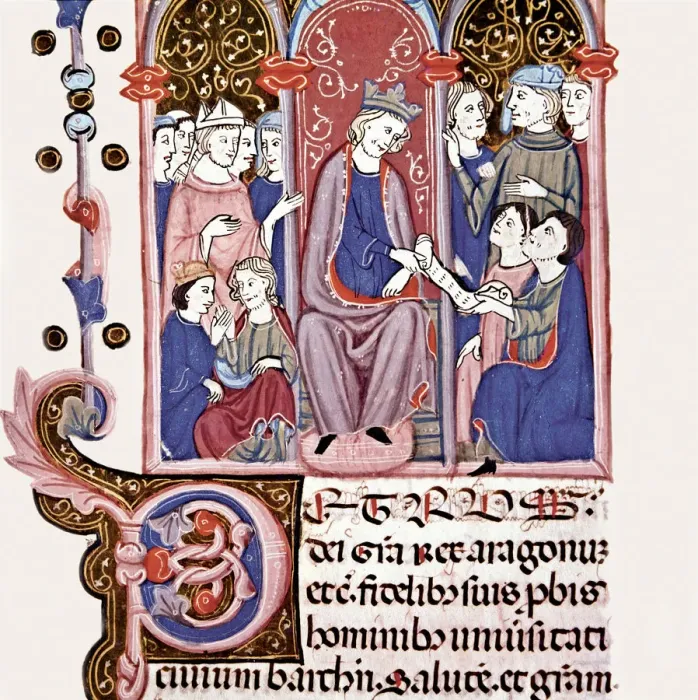 PETRUS:
dei gr̃a rex aragonuꝫ
etc̃. fidelibꝫ suis ꝓbis
hominibꝫ uniůsitati
ciuium barchñ. Salutẽ. et gr̃am.